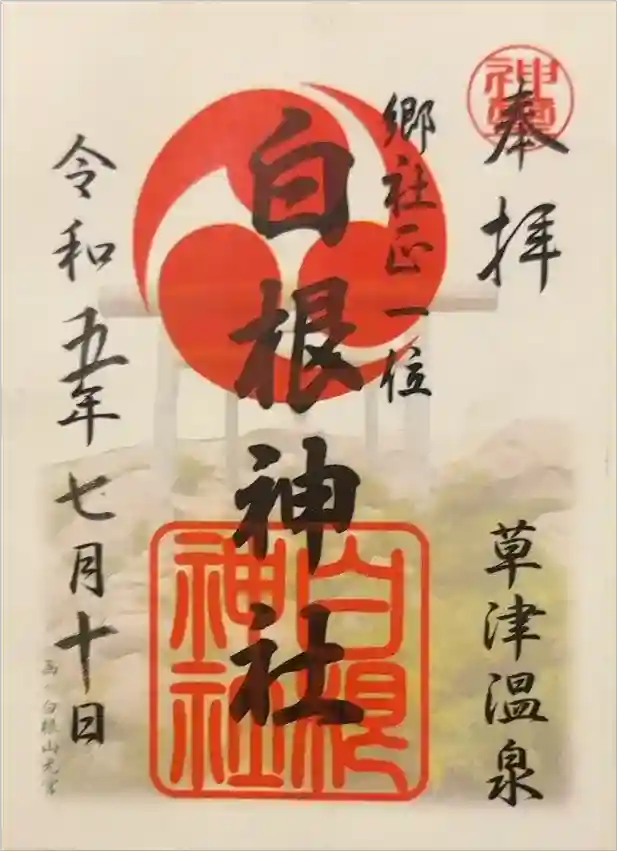 奉拝
神璽
草津温泉
郷社正一位
白根神社
白根
神社
令和五年七月十日
画・白根山元宮